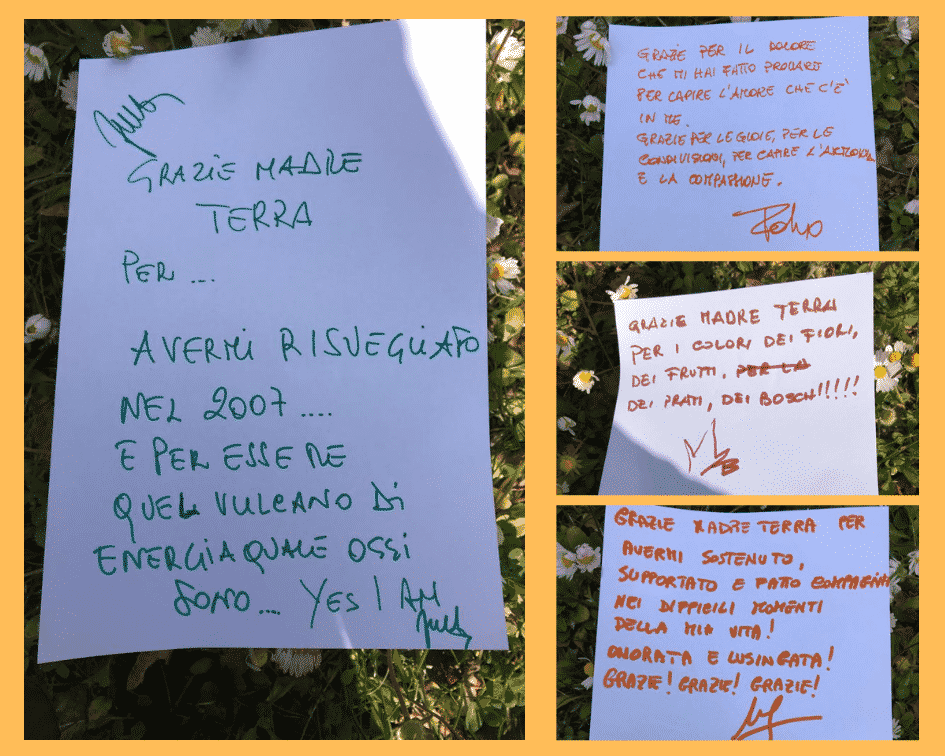 GRAZIE MADRE
TERRA
PER ...
AVERMI RISVEGLIATO
NEL 2007 ....
E PER ESSERE
QUEL VULCANO DI
ENERGIA QUALE OGGI
SONO ... YES I AM
GRAZIE PER IL DOLORE
CHE MI HAI FATTO PROVARE
PER CAPIRE L'AMORE CHE C'È
IN ME.
GRAZIE PER LE GIOIE, PER LE
CONDIVISIONI, PER CAPIRE
E LA COMPASSIONE.
GRAZIE MADRE TERRA
PER I COLORI DEI FIORI,
DEI FRUTTI, PER LA
DEI PRATI, DEI BOSCHI!!!!!
GRAZIE MADRE TERRA PER
AVERMI SOSTENUTO,
SUPPORTATO E FATTO COMPAGNIA
NEI DIFFICILI MOMENTI
DELLA MIA VITA!
ONORATA E LUSINGATA!
GRAZIE! GRAZIE! GRAZIE!